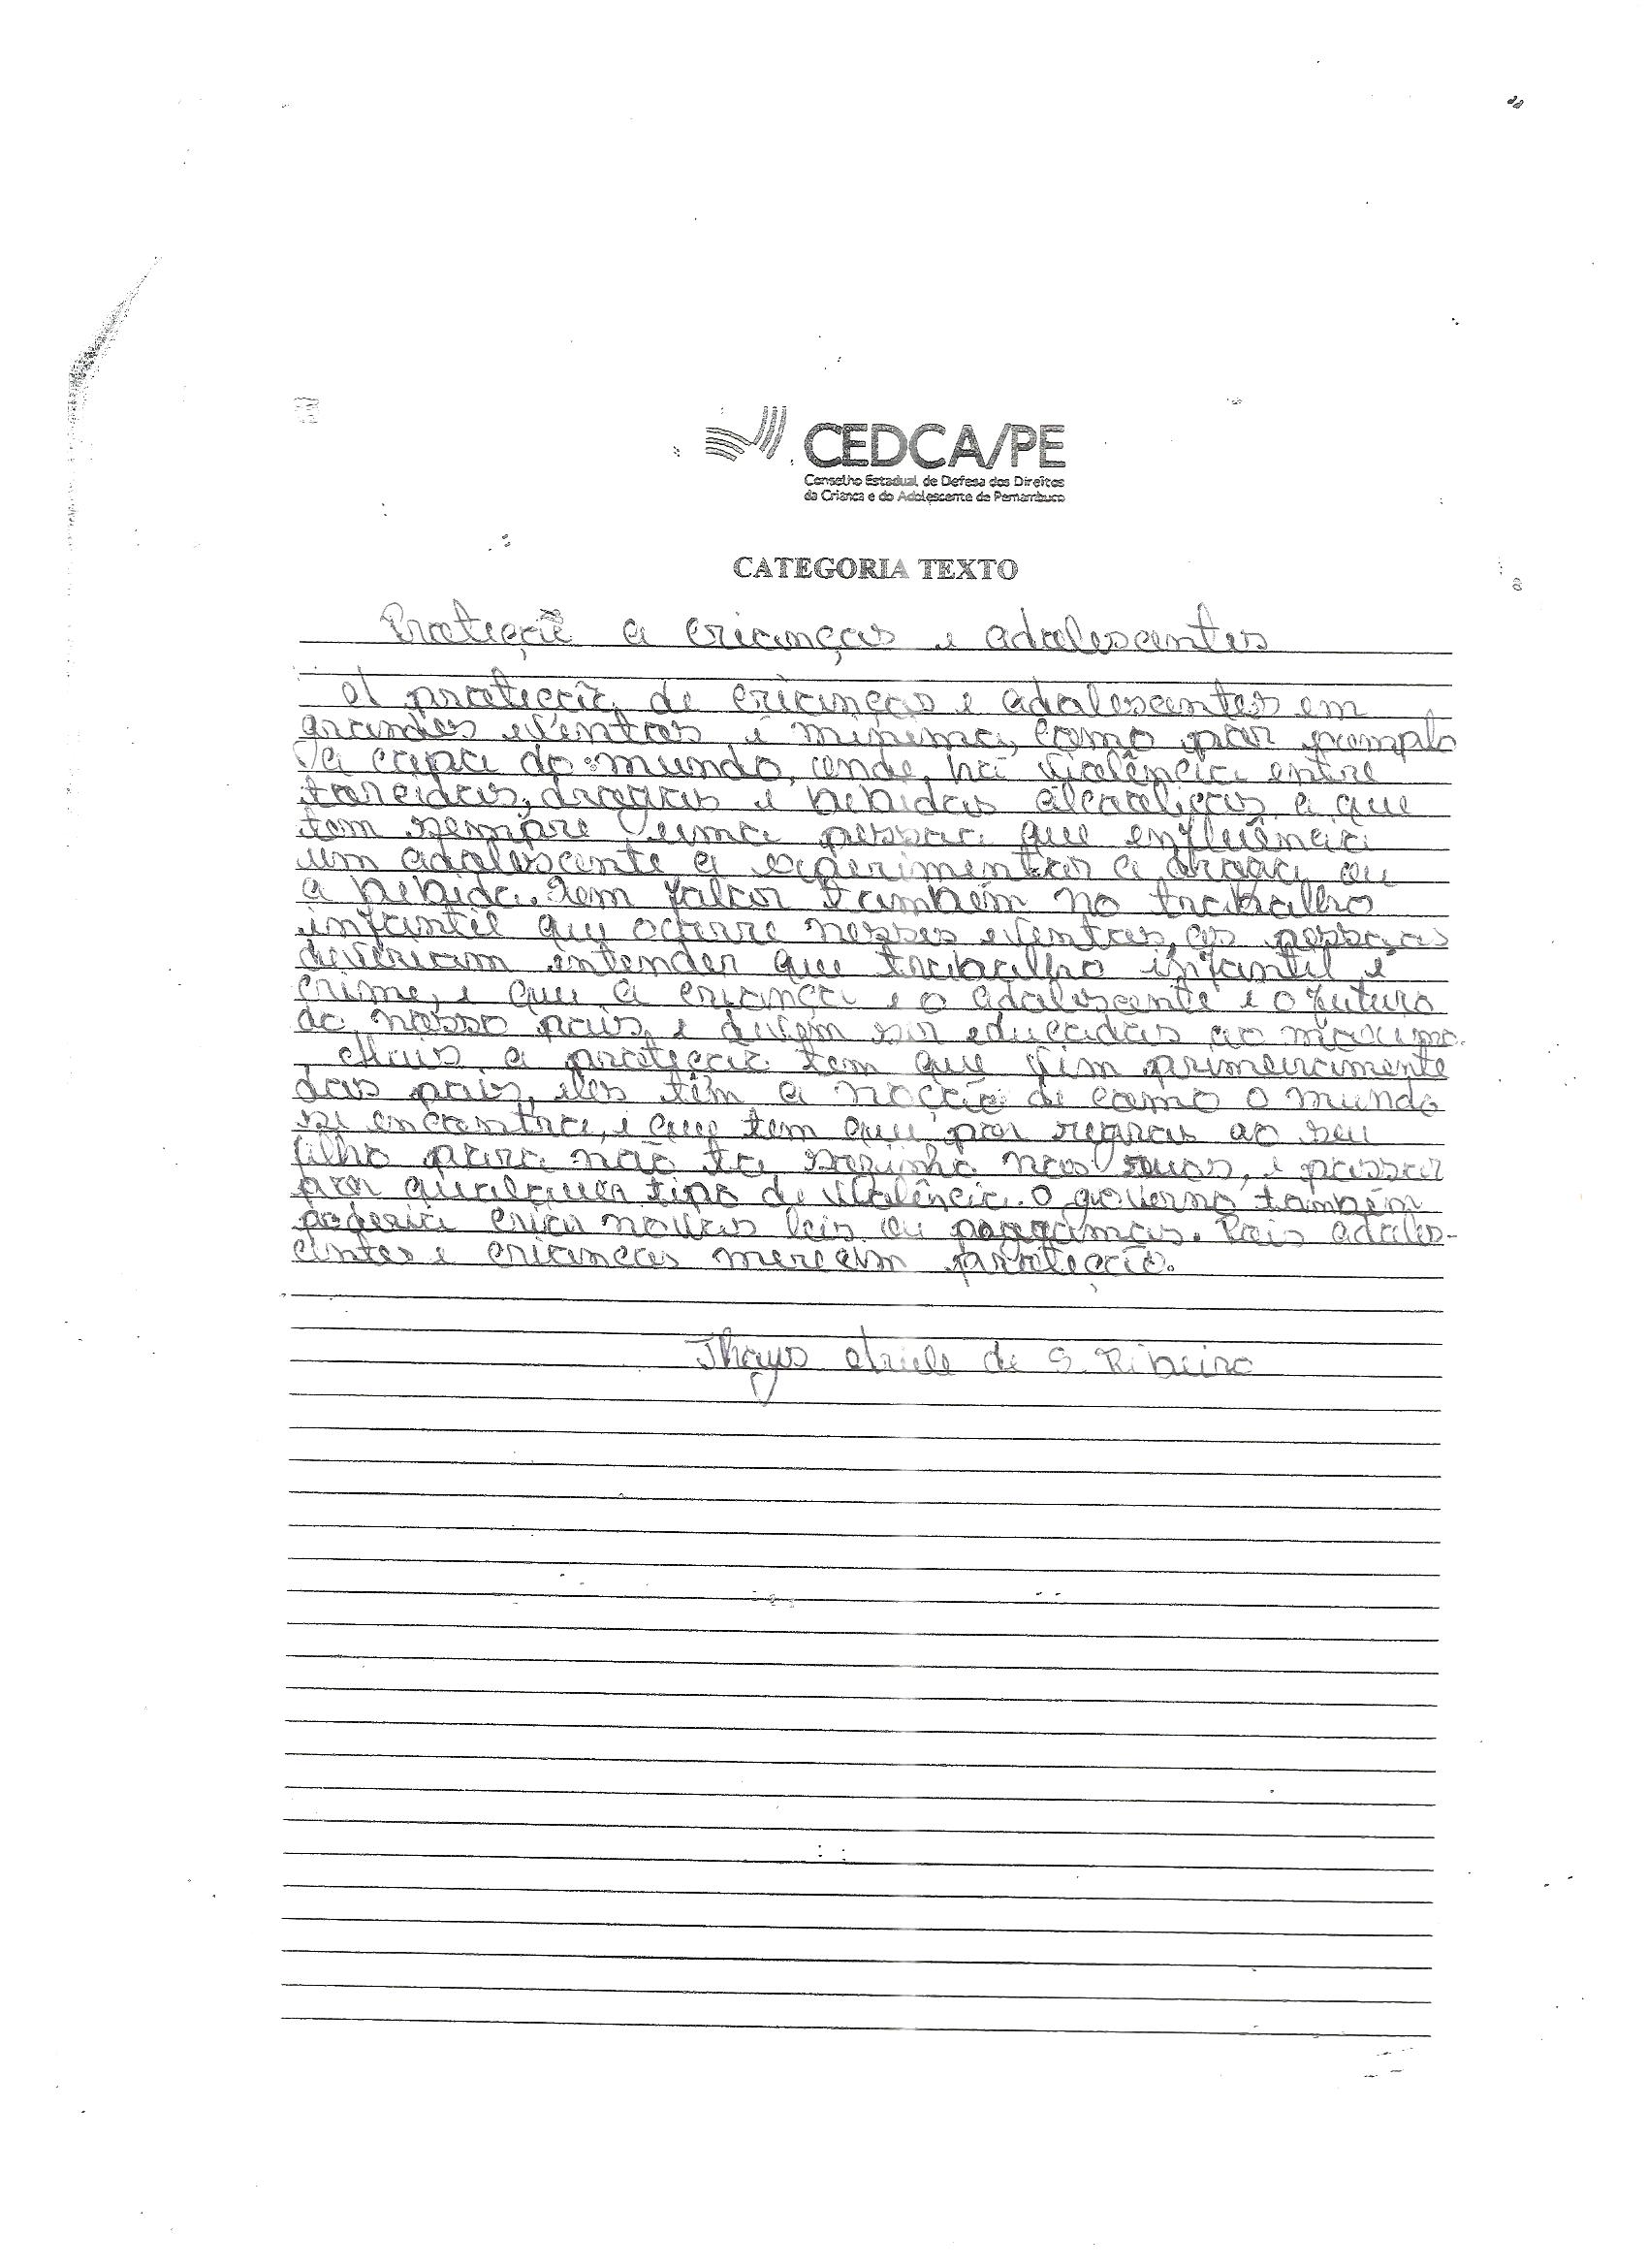 CEDCA/PE
Conselho Estadual de Defesa dos Direitos
da Criança e do Adolescente de Pernambuco
CATEGORIA TEXTO
Proteção a crianças e adolescentes
A proteção de crianças e adolescentes em
grandes eventos é mínima, como por exemplo
a copa do mundo, onde, há violência entre
torcidas, drogas e bebidas alcoolicas e que
tem sempre uma pessoa que enfluência
um adolescente a experimentar a droga ou
a bebida. Sem falar também no trabalho
infantil que ocorre nesses eventos, as pessoas
deveriam entender que trabalho infantil é
crime, e que a criança e o adolescente é o futuro
do nosso país, e devem ser educadas ao máximo.
Mais a proteção tem que vim primeiramente
dos pais, eles têm a noção de como o mundo
se encontra, e que tem que por regras ao seu
filho para não ta sozinho nas ruas, e passar
por qualquer tipo de violência. O governo também
poderia criar novas leis ou programas. Pois adoles-
centes e crianças merecem proteção.
Thays Ariele de S. Ribeiro